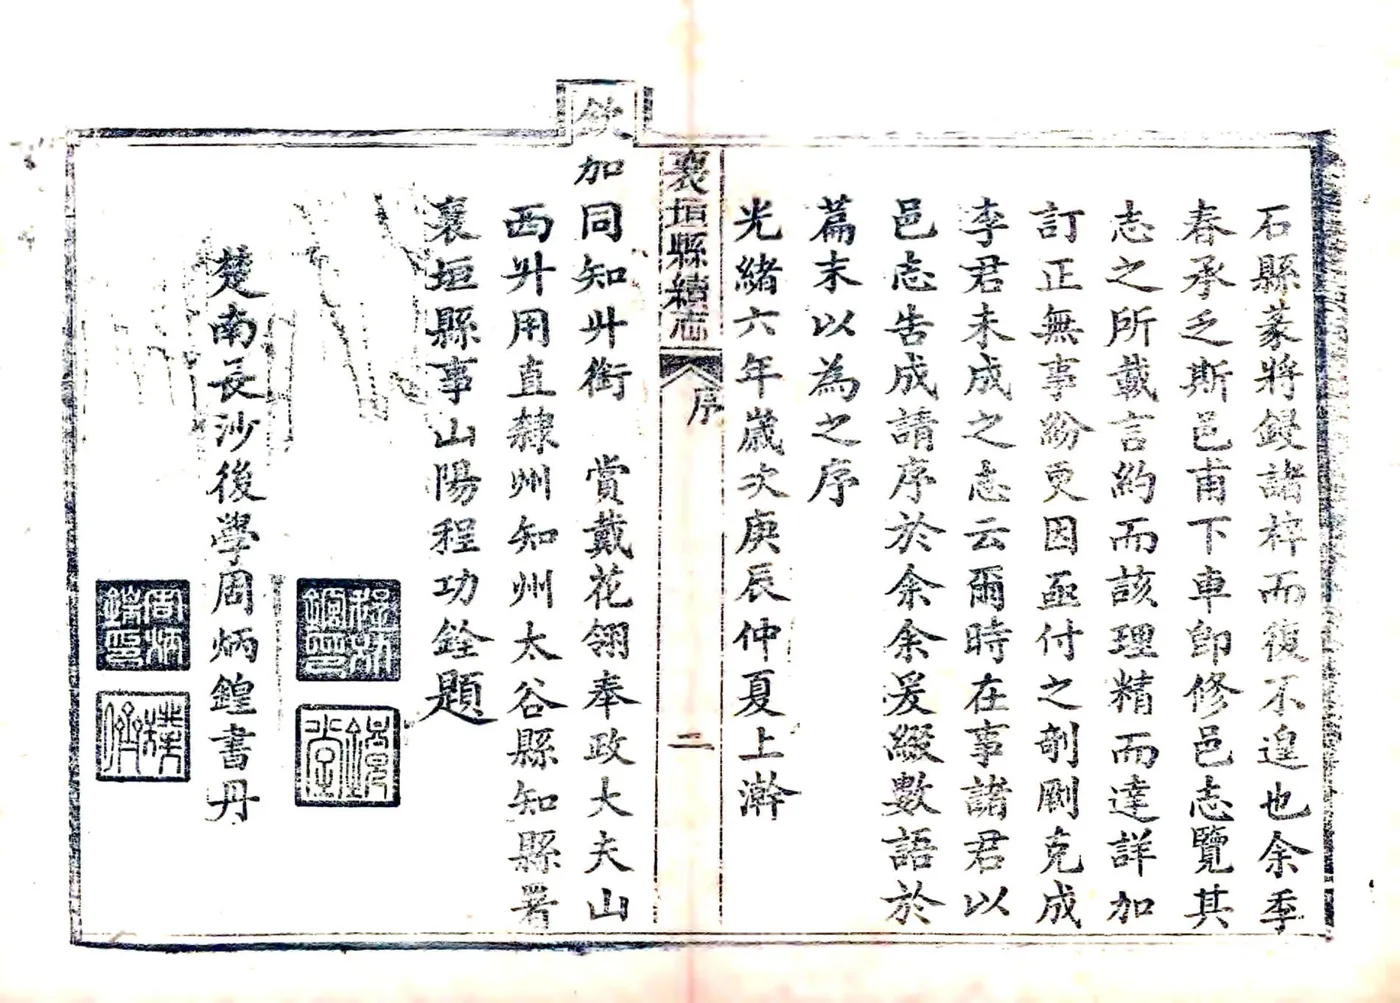 石縣篆將鋟諸梓而復不遑也余季
春承乏斯邑甫下車卽修邑志覽其
志之所載言約而該理精而達詳加
訂正無事紛更因亟付之剞劂克成
李君未成之志云爾時在事諸君以
邑志吿成請序於余余爰綴數語於
篇末以為之序
光緒六年歲次庚辰仲夏上澣
襄垣縣續志
序
二
欽加同知升銜 賞戴花翎奉政大夫山
西升用直隸州知州太谷縣知縣署
襄垣縣事山陽程功銓題
楚南長沙後學周炳鍠書丹
周炳鍠印